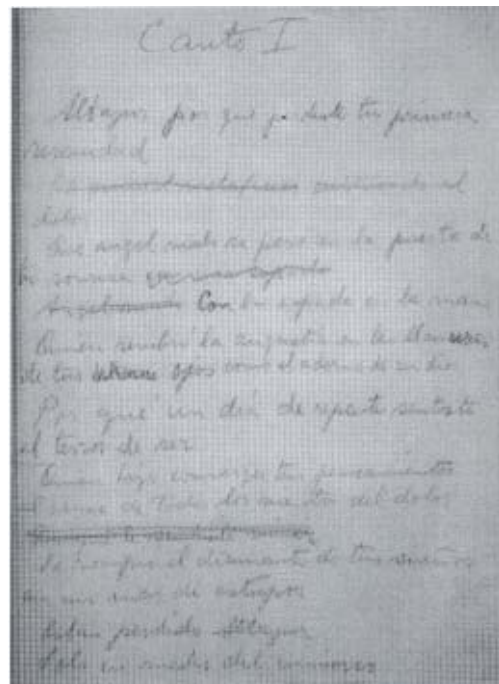 Canto I
Altazor por que perdiste tu primera
serenidad
Que angel malo se paro en la puerta de
tu sonrisa
Con la espada en la mano
Quien sembró la angustia en la llanuras
de tus ojos como el adorno de un dios
Por qué un dia de repente sentiste
el terror de ser
Quien hizo converger tus pensamientos
al cruce de todos los vientos del dolor
Se rompio el diamante de tus sueños
en un mar de estupor
Estas perdido Altazor
Solo en medio del universo